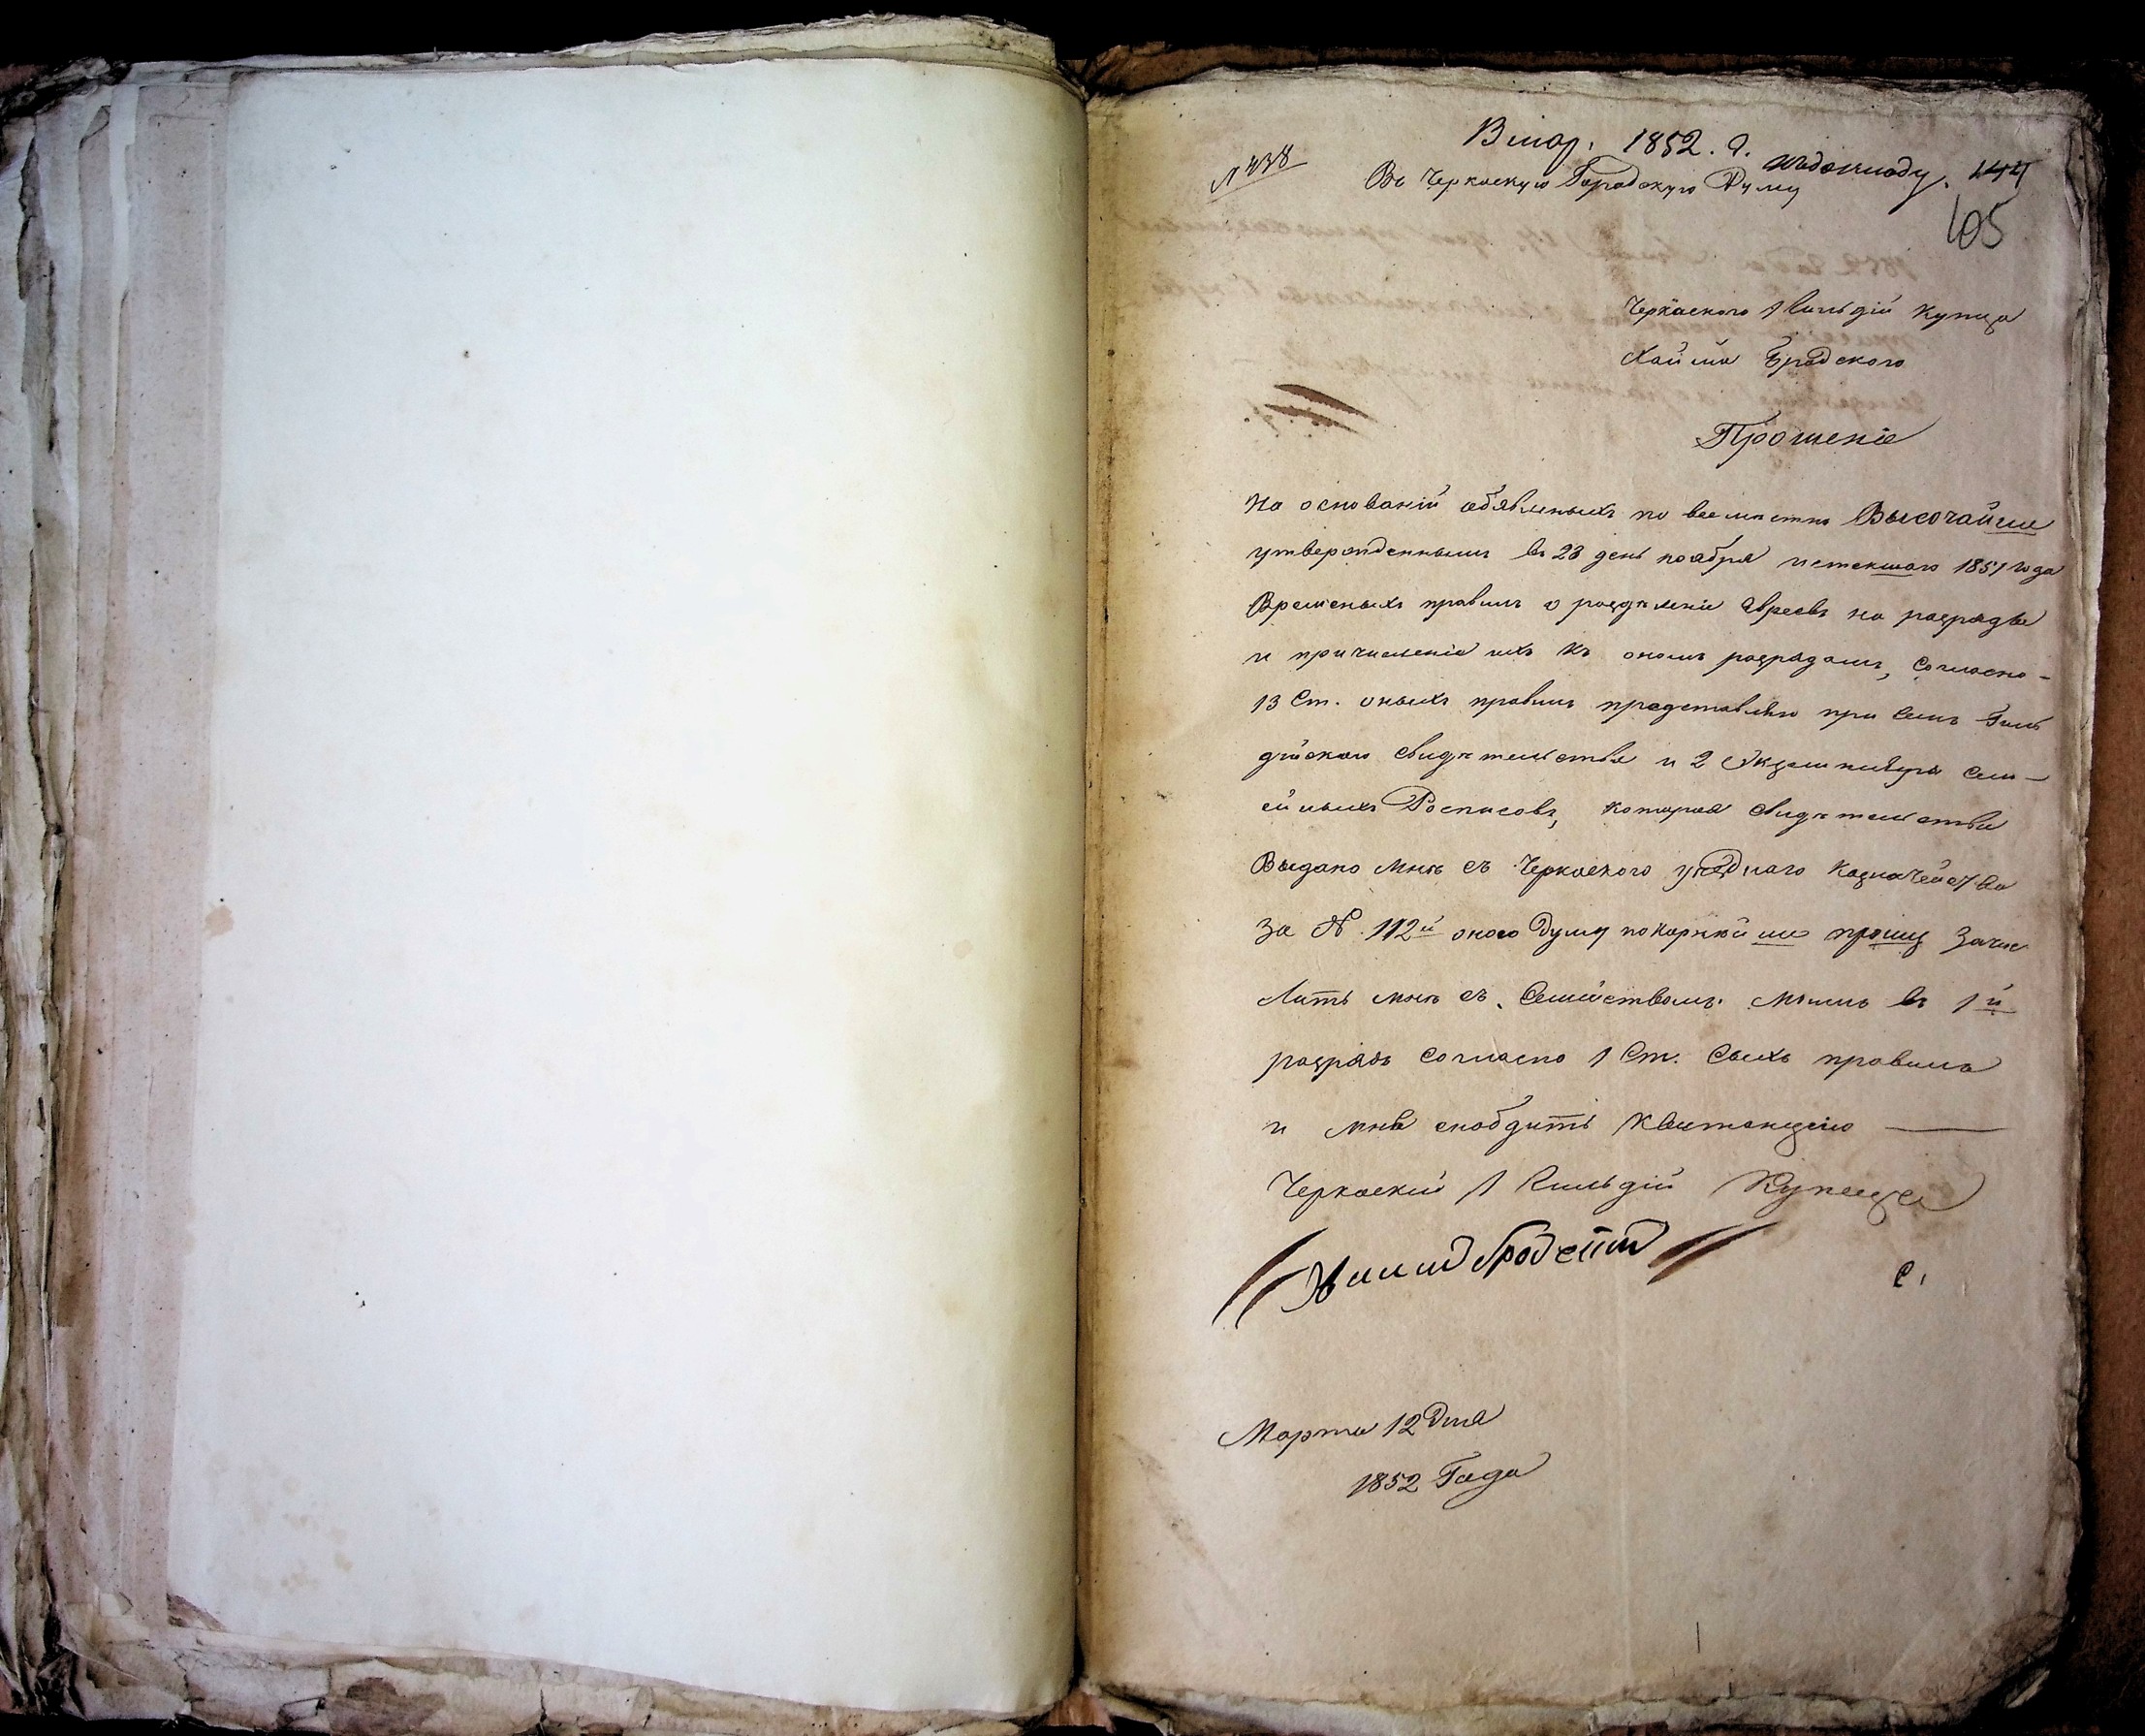 № 438
1852. г. к докладу. 144
Въ Черкаскую Городскую Думу
105
Черкаского 1 Гильдій Купца
Хайма Бродского
Прошеніе
На основаній обявленыхъ по всеместно Высочайше
утвержденнымъ въ 23 день ноября истекшаго 1851 года
Временыхъ правилъ о разделеніи Евреевъ на разряды
и причисленіе ихъ къ онымъ разрядамъ, Согласно
13 Ст. оныхъ правилъ представляю при семъ Гиль
дийского свидѣтельства и 2 Екземпляра Сем-
ейныхъ Росписовъ, которая свидѣтельства
Выдано мнѣ съ Черкаского уезднаго Казначейства
За №. 112й оного Думу покорнейше прошу Зачис
лить мнѣ съ Семействомъ моимъ въ 1й
разрядъ согласно 1 Ст. Сыхъ правила
и мнѣ снобдить Квитанцію —
Черкаский 1 Гильдій Купецъ
Хаимъ Бродский
С.
Марта 12 Дня
1852 Года